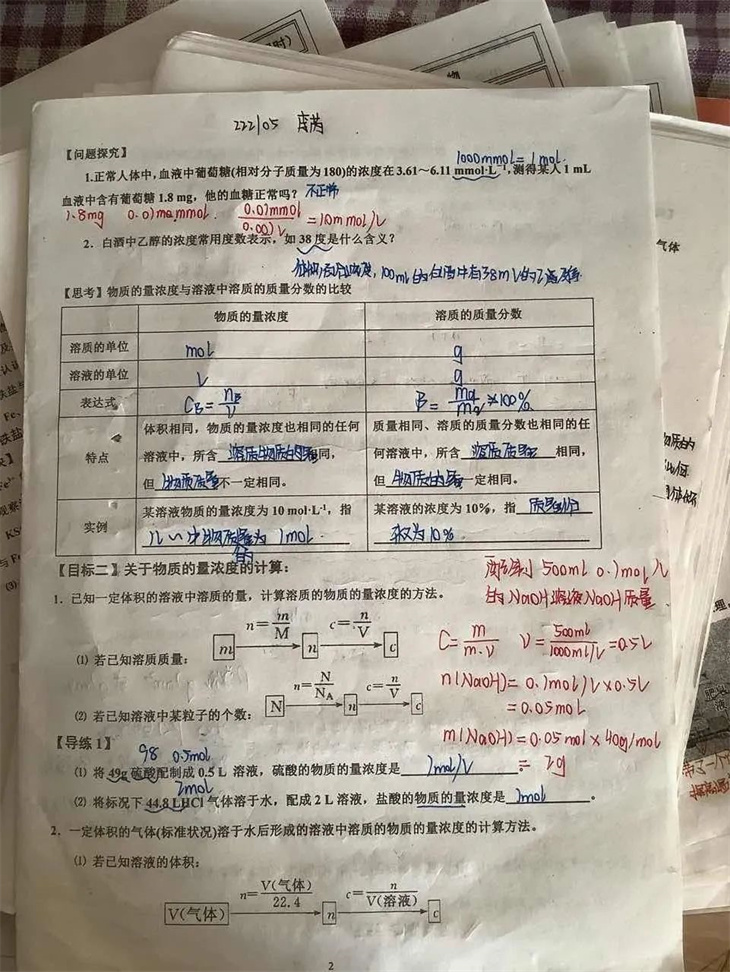 222105
【问题探究】
1000mmol=1mol.
1.正常人体中,血液中葡萄糖(相对分子质量为180)的浓度在3.61～6.11 mmol·L⁻¹,测得某人1 mL
血液中含有葡萄糖1.8 mg，他的血糖正常吗？ 不正常
1.8mg 0.01mmol. 0.01mmol/0.001L = 10mmol/L
2．白酒中乙醇的浓度常用度数表示，如38度是什么含义？
100ml的白酒中有38ml的乙醇
【思考】物质的量浓度与溶液中溶质的质量分数的比较
物质的量浓度 溶质的质量分数
溶质的单位 mol g
溶液的单位 L g
表达式 CB=nB/V ×100%
特点
体积相同，物质的量浓度也相同的任何 质量相同、溶质的质量分数也相同的任
溶液中，所含 溶质物质的量 同， 何溶液中，所含 溶质质量 相同，
但 物质质量 不一定相同。 但 物质的量 一定相同。
实例
某溶液物质的量浓度为10 mol·L⁻¹，指 某溶液的浓度为10%，指 质量分
物质的量为 1mol. 数为10%
【目标二】关于物质的量浓度的计算：
500ml 0.1mol/L
1．已知一定体积的溶液中溶质的质量，计算溶质的物质的量浓度的方法。
的NaOH溶液NaOH质量
n=m/M c=n/V
(1) 若已知溶质质量： m n c
C=m/m·V V=500ml/1000ml/L=0.5L
n(NaOH)=0.1mol/L×0.5L
=0.05mol
n=N/NA c=n/V
(2) 若已知溶液中某粒子的个数： N n c
m(NaOH)=0.05mol×40g/mol
=2g
【导练1】
98 0.5mol
(1) 将49g硫酸配制成0.5 L 溶液，硫酸的物质的量浓度是 1mol/L 。
2mol
(2) 将标况下44.8 LHCl气体溶于水，配成2 L溶液，盐酸的物质的量浓度是 1mol 。
2．一定体积的气体(标准状况)溶于水后形成的溶液中溶质的物质的量浓度的计算方法。
(1) 若已知溶液的体积：
n=V(气体)/22.4 c=n/V(溶液)
V(气体) n c
2
气体